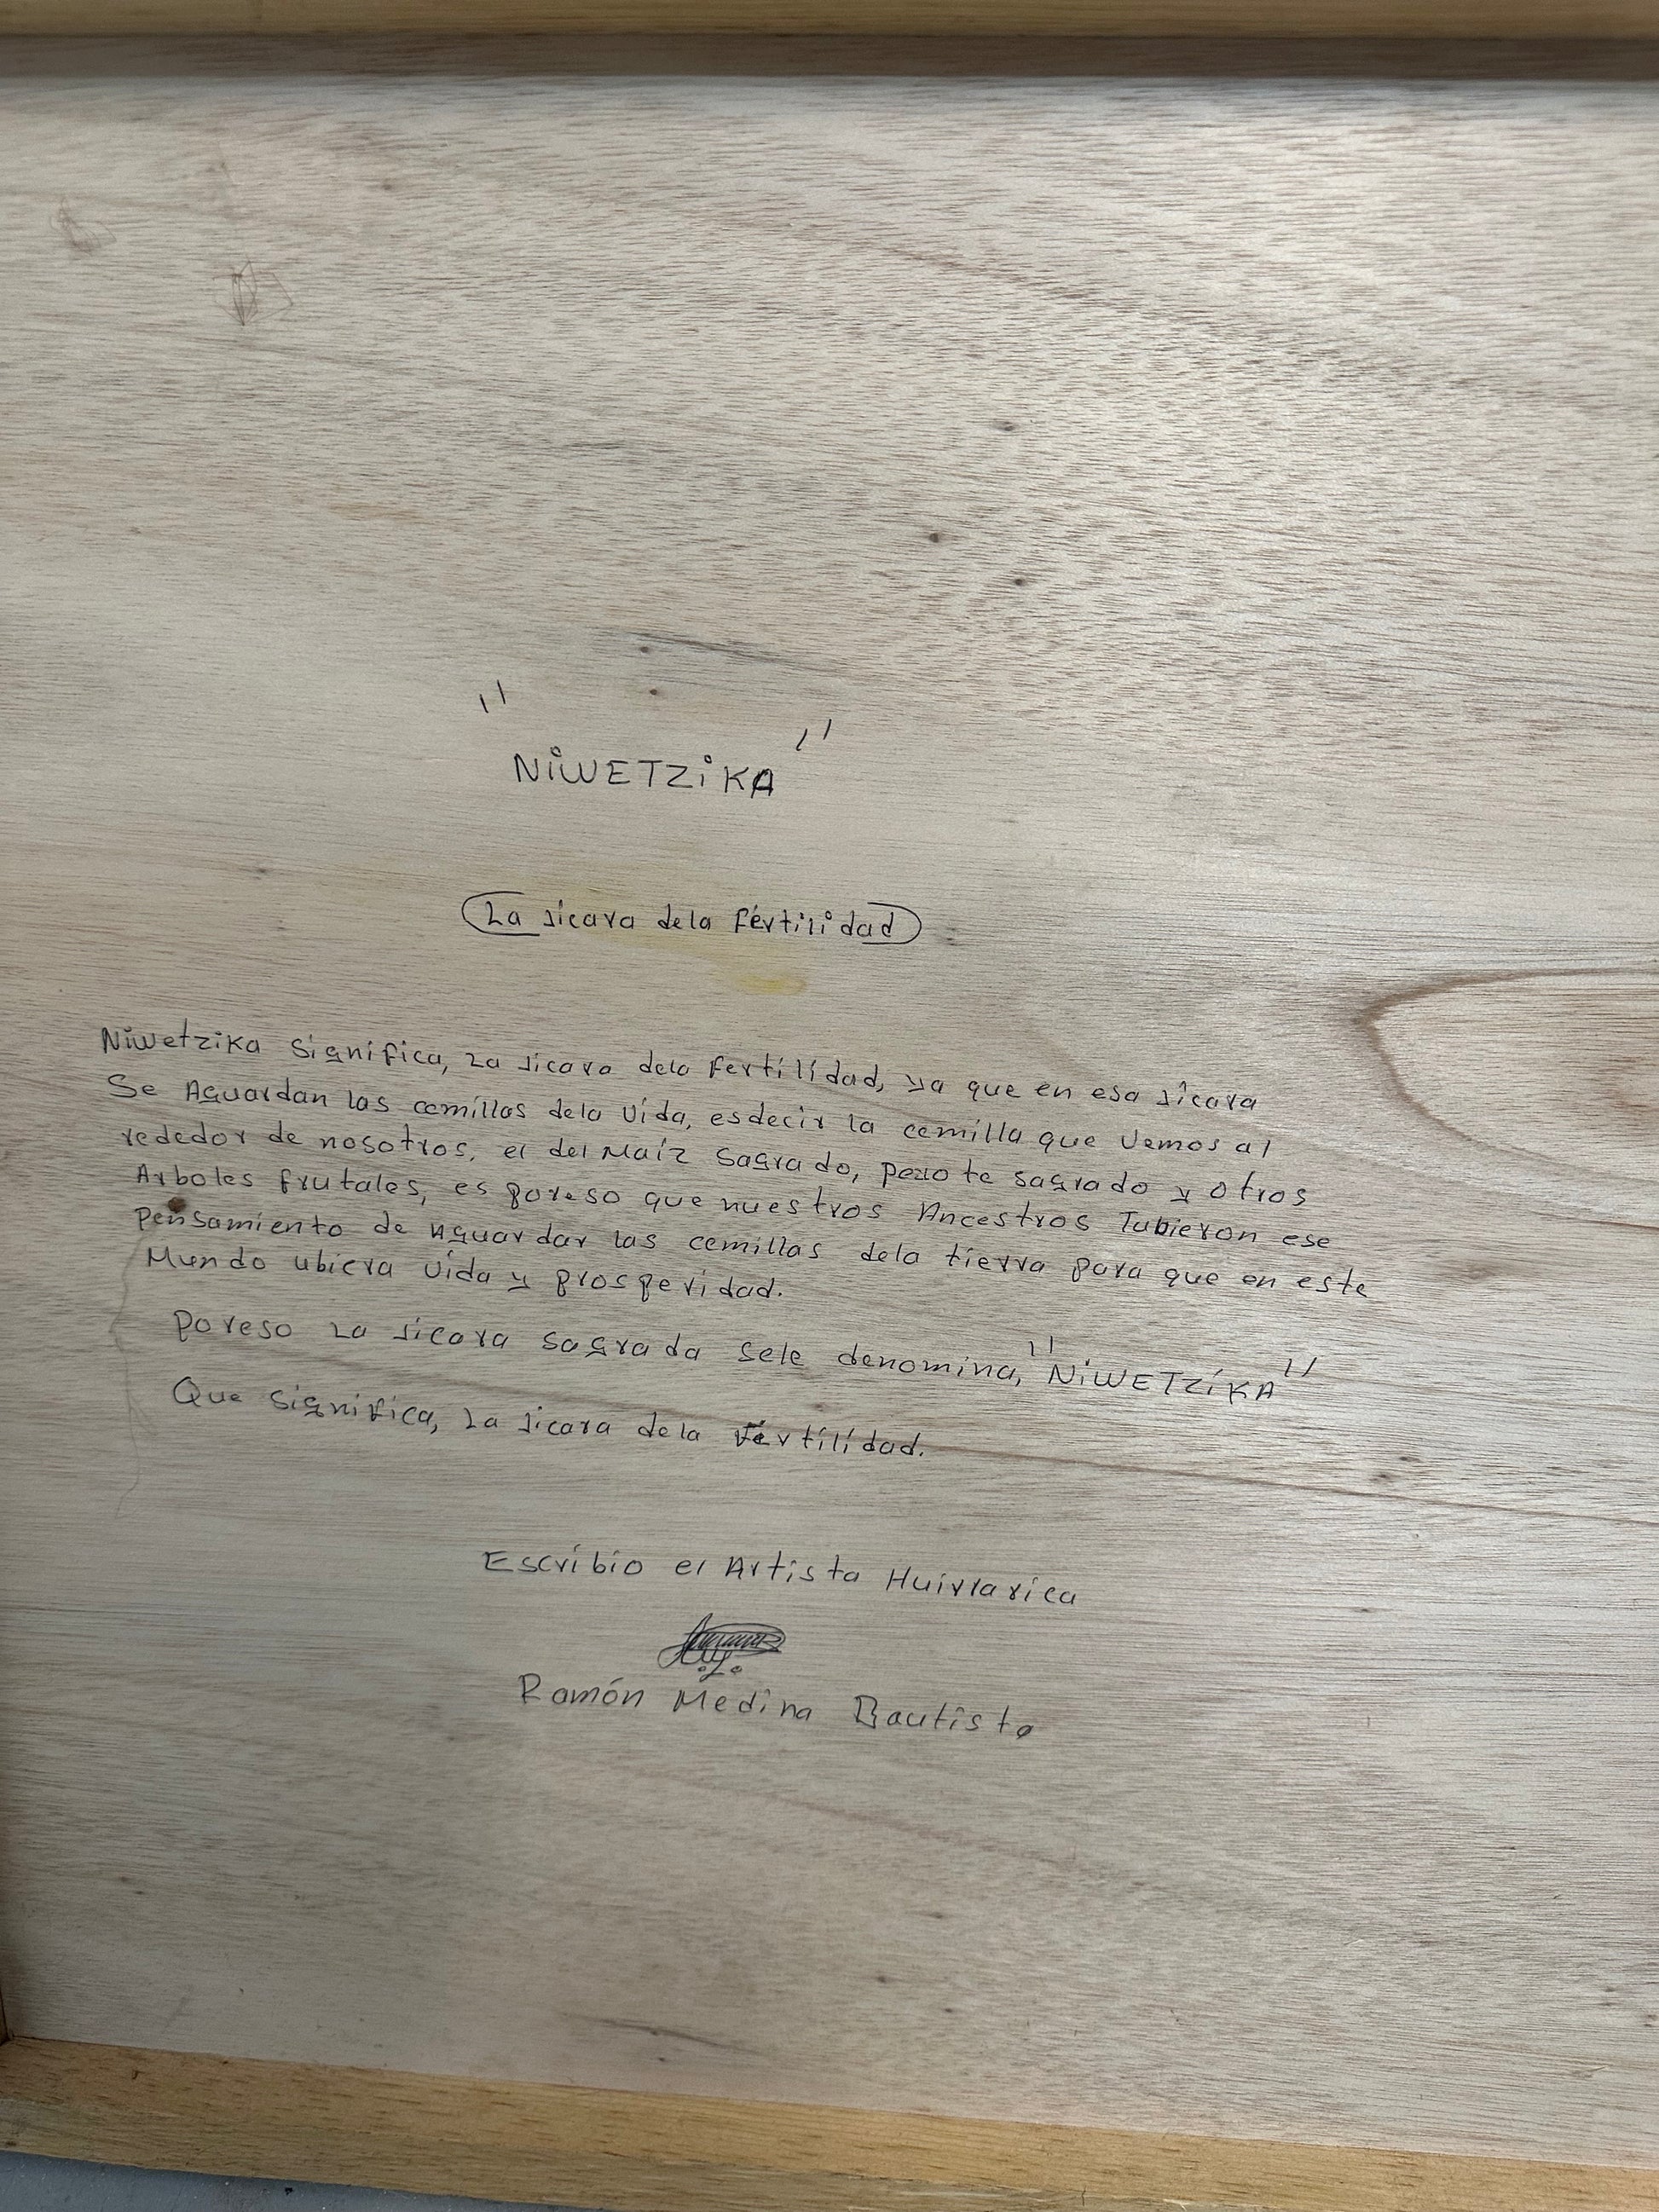 "NiWETZiKA"
La Jicara dela Fértilidad
Niwetzika Significa, La Jicara dela Fertilidad, ya que en esa Jicara
Se Aguardan las cemillas dela Vida, esdecir la cemilla que Vemos al
rededor de nosotros, el del Maíz Sagrado, peyote sagrado y otros
Arboles frutales, es poreso que nuestros Ancestros Tubieron ese
Pensamiento de aguardar las cemillas dela tierra para que en este
Mundo ubiera Vida y prosperidad.
Poreso La Jicara Sagrada Sele denomina, "NiWETZíKA"
Que Significa, La Jicara dela Fértilidad.
Escribio el Artista Huirrarica
Ramón Medina Bautista